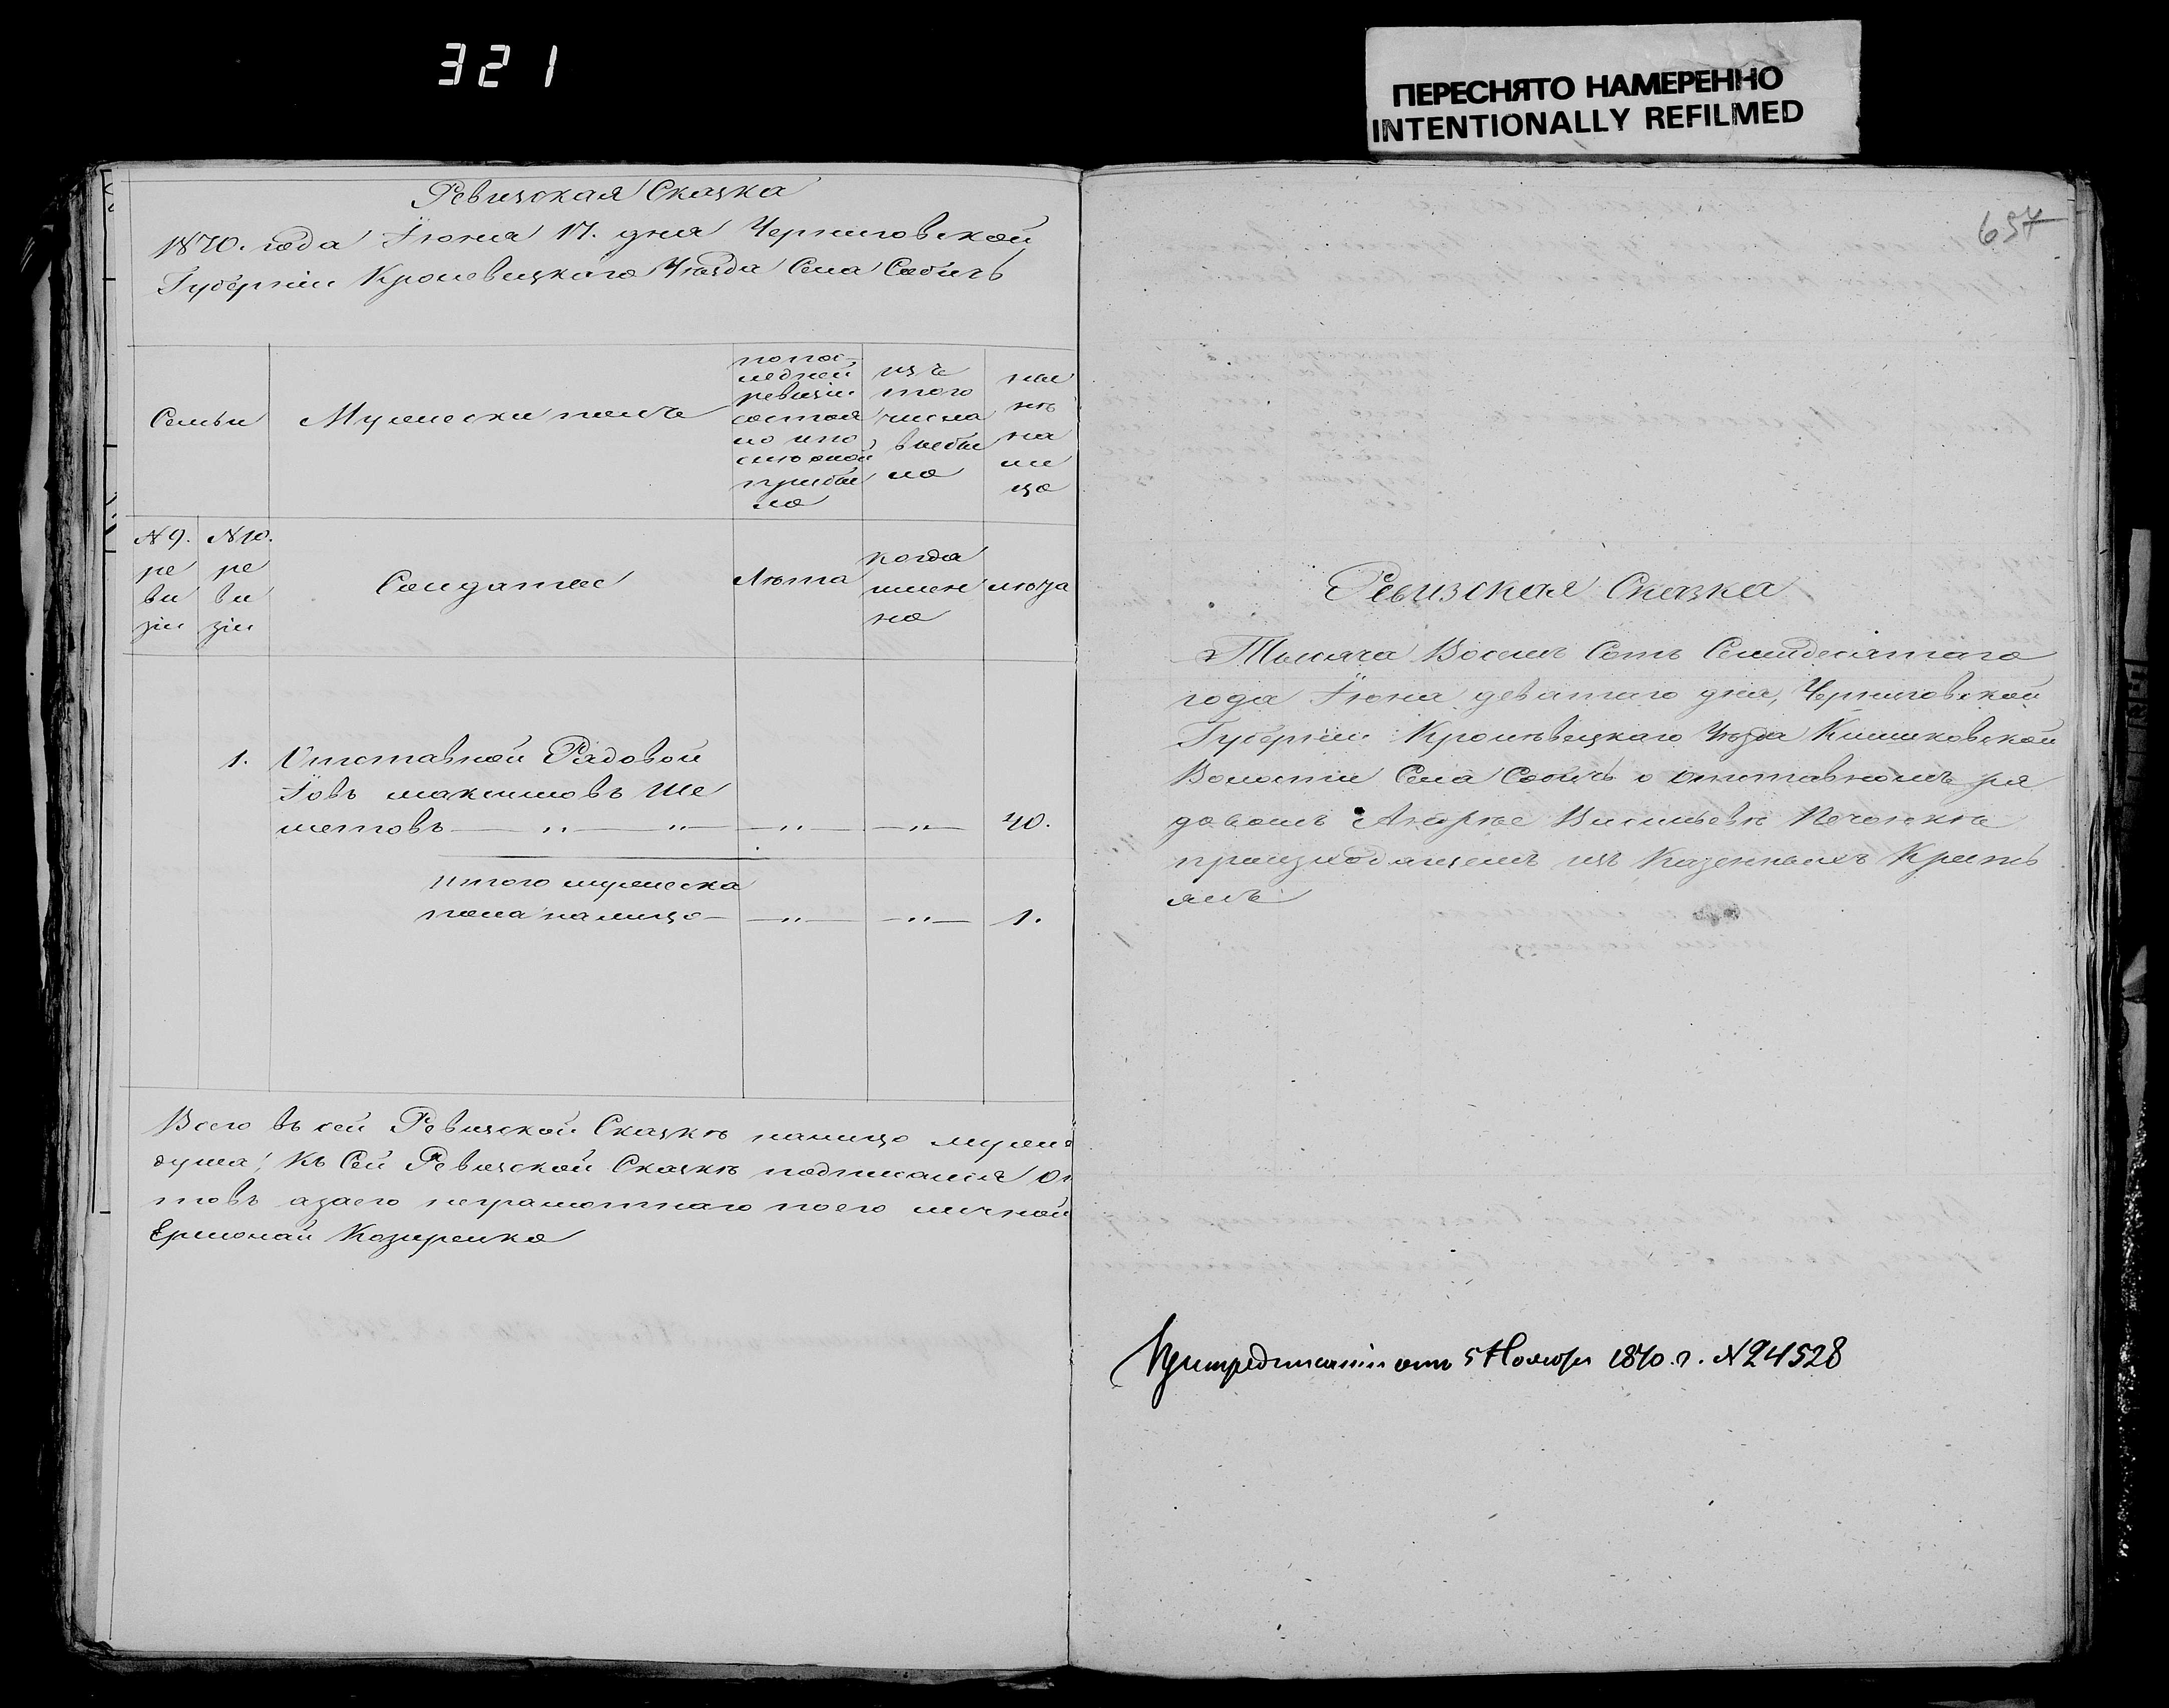 321
ПЕРЕСНЯТО НАМЕРЕННО
INTENTIONALLY REFILMED
Ревизская Сказка
1870. года Іюня 17. дня Черниговской
Губерніи Кролевецкаго Уѣзда Села Собичь
Семьи
Мужеска полъ
по пос-
ледней
ревизіи
состоя
ло и по
слю оной
прибы
ло
изъ
того
числа
выбы
ло
ны
нѣ
на
ли
цо
N 9.
ре
ви
зіи
N 10.
ре
ви
зіи
Лѣта
когда
имен
но
лѣта
1. Отставной Рядовой
Іовъ максимовъ Ше
метовъ — „ — „ — „ — „ — 40.
итого мужеска
пола налицо — „ — „ — 1.
Всего въ сей Ревизской Сказкѣ налицо мужеска
душа, Къ Сей Ревизской Сказкѣ
товъ азаего неграмотнаго по его личной
Козиренко
657
Ревизская Сказка
Тысяча Восемь Сотъ Семидесятаго
года Іюня девятаго дня, Черниговской
Губерніи Кролѣвецкаго Уѣзда
Волости Села Собичь о отставномъ ря
довомъ Андрѣе Васильевѣ
произходящемъ изъ Казенныхъ Кресть
янъ
При предписаніи отъ 5 Ноября 1870. г. N 24528